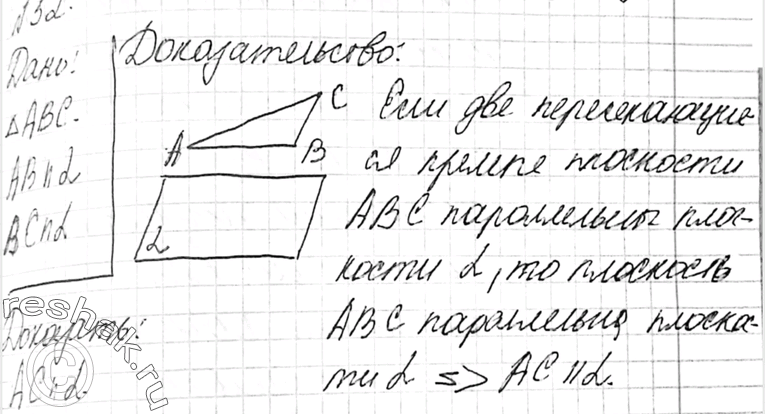 Дано:
△ABC.
AB || α
BC || α
Доказать:
AC || α.
Доказательство:
A
B
C
α
Если две пересекающие-
ся прямые плоскости
ABC параллельны плос-
кости α, то плоскость
ABC параллельна плоско-
сти α => AC || α.
reshak.ru